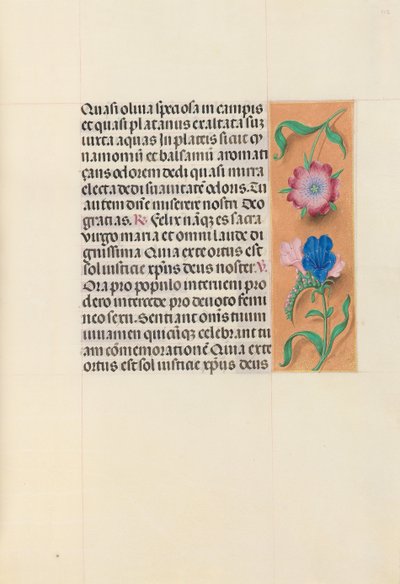 Quasi oliua speciosa in campis
et quasi platanus exaltata sũ
iuxta aquas In plateis sicut cy
namomũ et balsamũ aromati
çans odorem dedi quasi mirra
electa dedi suauitatẽ odoris. Tu
autem dñe miserere nostri Deo
gratias. R. Felix nãqȝ es sacra
virgo maria et omni laude di
gnissima Quia ex te ortus est
sol iusticie xp̃us deus noster. V.
Ora pro populo interueni pro
clero intercede pro deuoto femi
neo sexu. Sentiant om̃s tuum
iuuamen quicũqȝ celebrant tu
am cõmemorationẽ Quia ex te
ortus est sol iusticie xp̃us deus